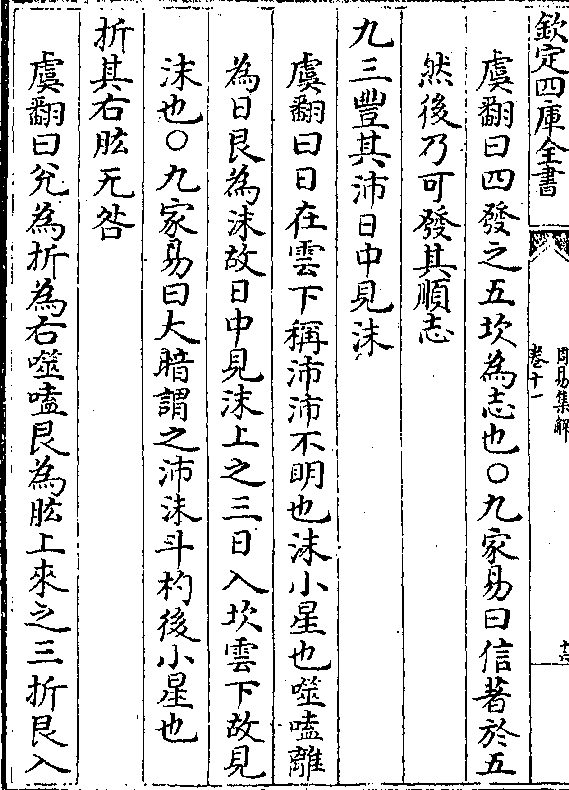 欽定四庫全書
周易集解
卷十一
十六
虞翻曰四發之五坎為志也○九家易曰信著於五
然後乃可發其順志
九三豐其沛日中見沬
虞翻曰日在雲下稱沛沛不明也沬小星也噬嗑離
為日艮為沬故日中見沬上之三日入坎雲下故見
沬也○九家易曰大暗謂之沛沬斗杓後小星也
折其右肱无咎
虞翻曰兌為折為右噬嗑艮為肱上來之三折艮入